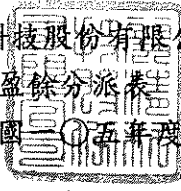 科技股份有限公
盈餘分派表
國一〇五年度